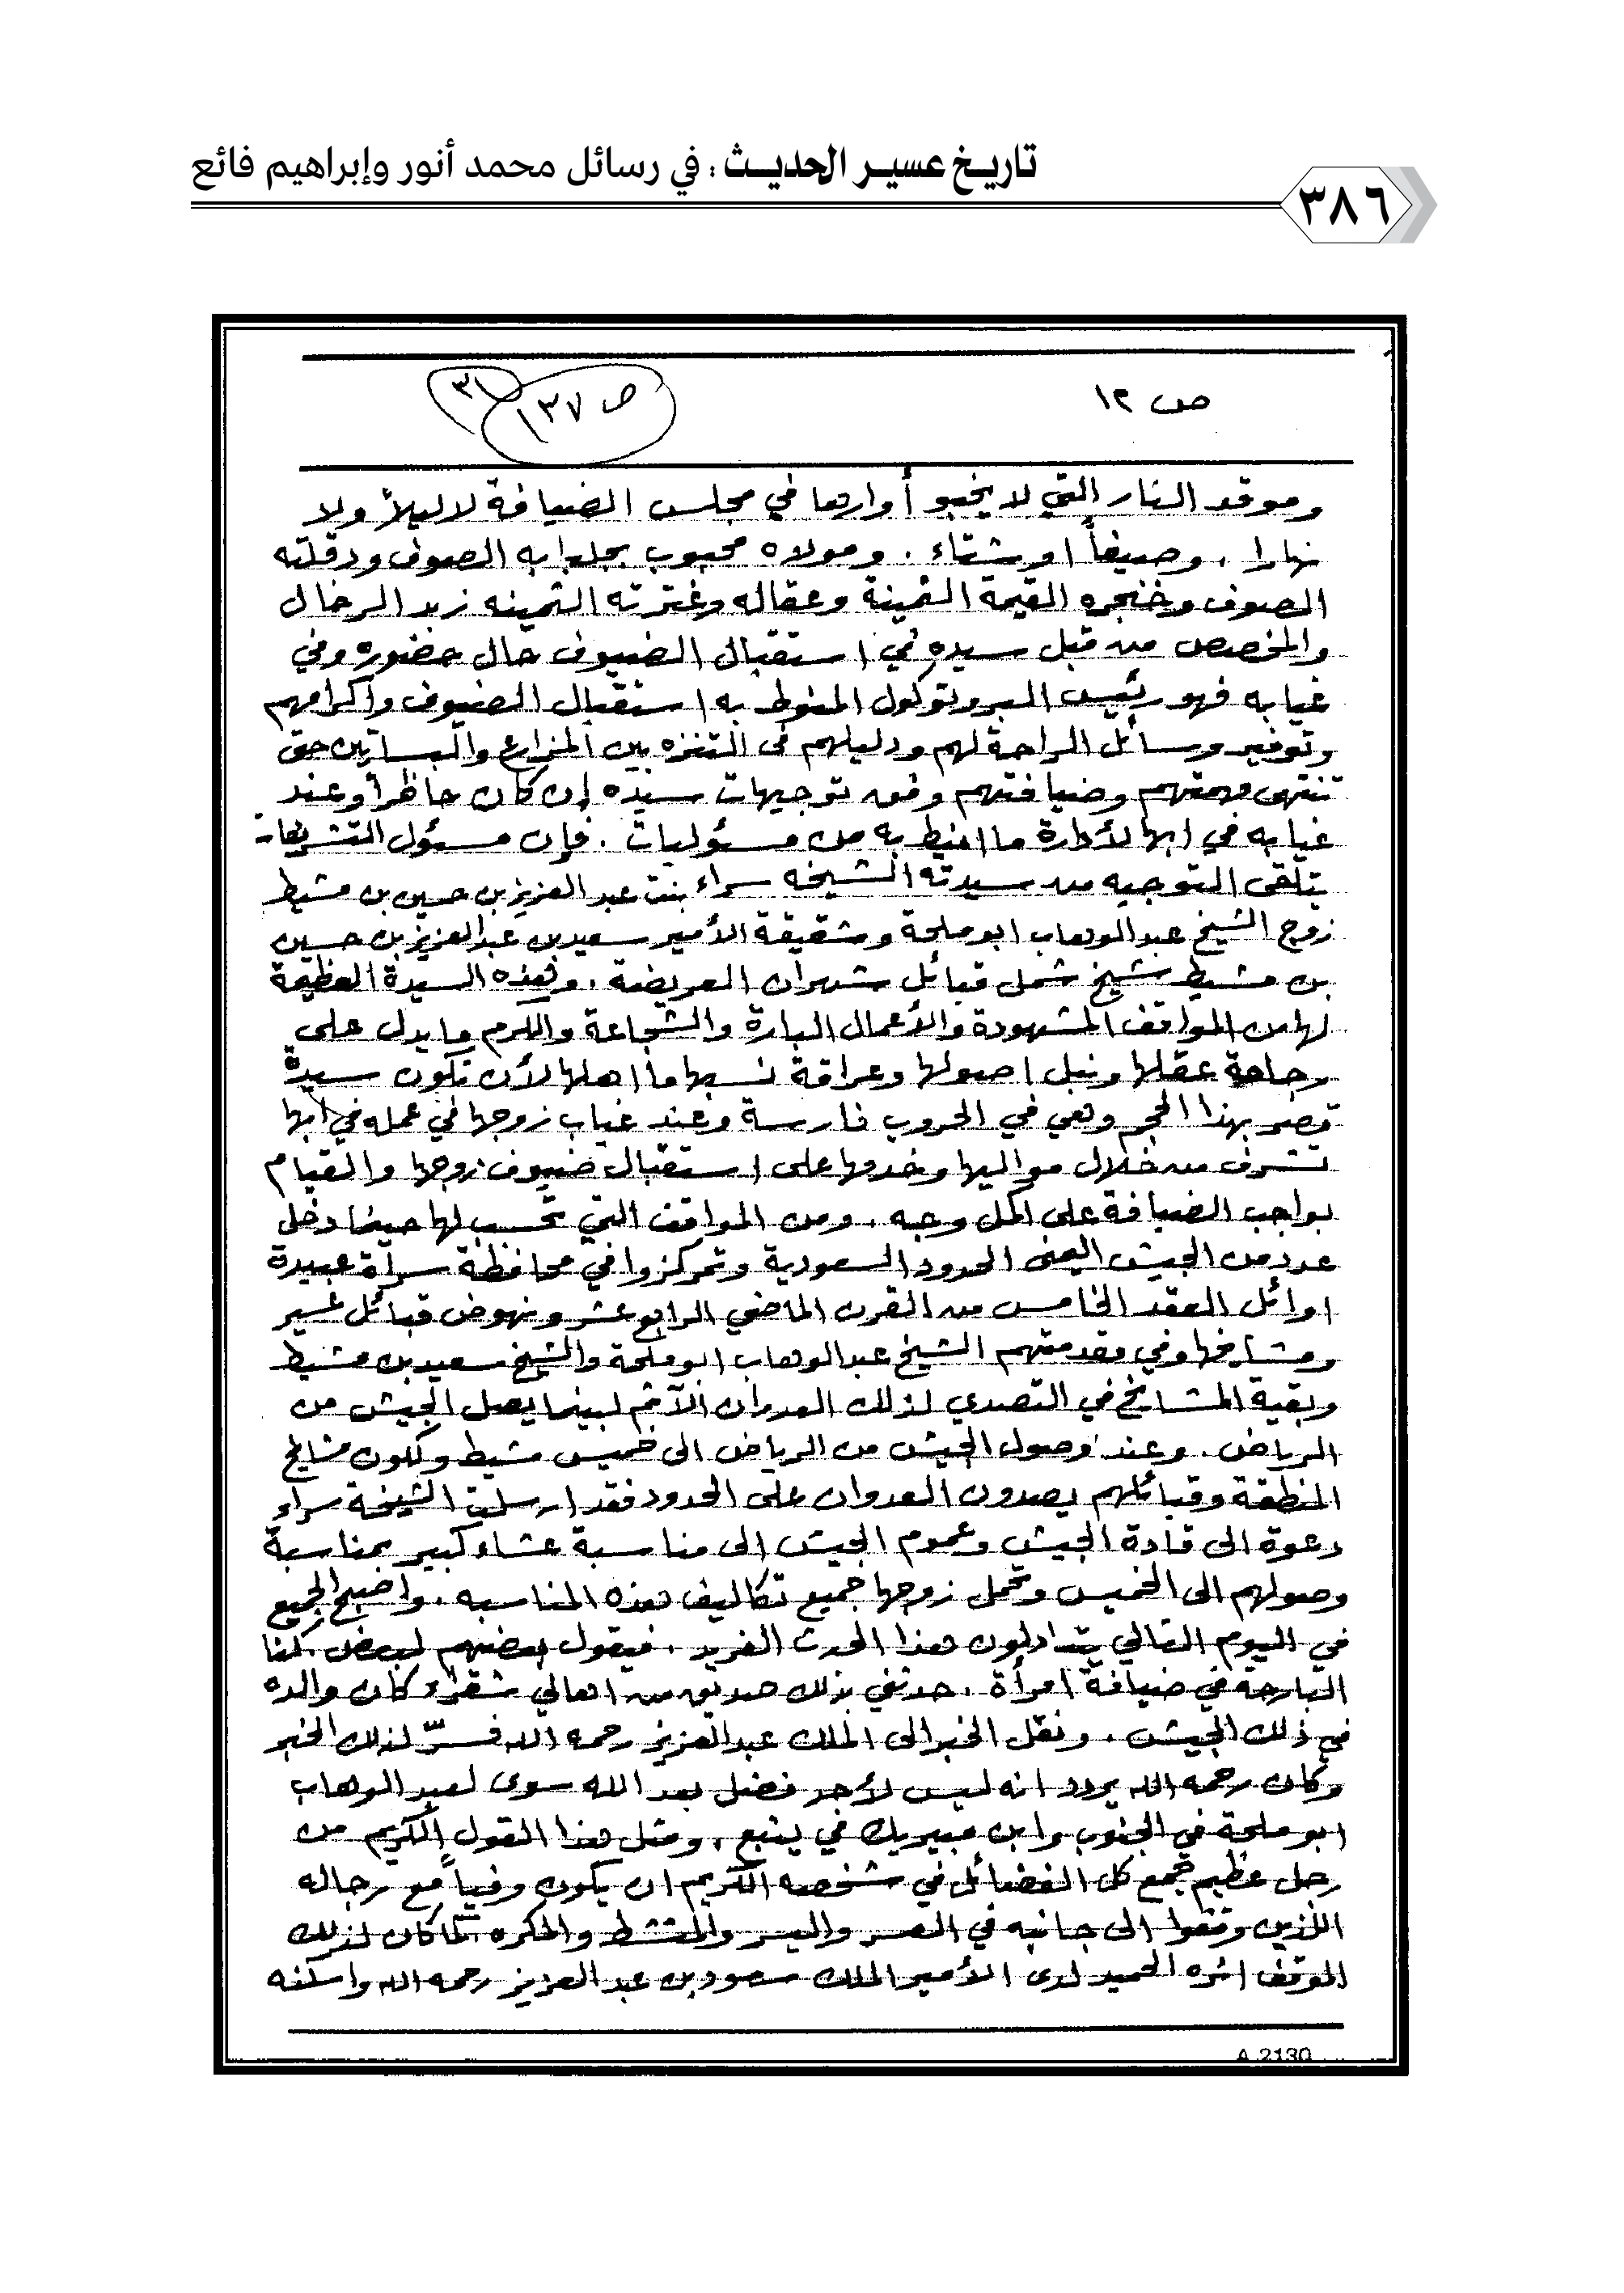 تاريخ عسير الحديث : في رسائل محمد أنور وإبراهيم فائع
٣٨٦
ص ١٢
ص ١٣٧
٣١
وموقد النار التي لا يخبو أوارها في مجلس الضيافة لا ليلاً ولا
نهارا ، وصيفاً او شتاء . ومولاه محبوب بجلبابه الصوف ودقلته
الصوف وخنجره القيمة الثمينة وعقاله وغترته الثمينه زبد الرخال
والمخصص من قبل سيده في استقبال الضيوف حال حضوره وفي
غيابه فهو رئيس البروتوكول المنوط به استقبال الضيوف واكرامهم
وتوفير وسائل الراحة لهم ودليلهم في التنزه بين المزارع والبساتين حتى
تنتهي مهمتهم وضيافتهم وفق توجيهات سيده إن كان حاظراً وعند
غيابه في ابها لأدارة ما انيط به من مسئوليات . فإن مسئول التشريفات
يتلقى التوجيه من سيدته الشيخه سراء بنت عبد العزيز بن حسين بن مشيط
زوج الشيخ عبد الوهاب ابو ملحة وشقيقة الأمير سعيد بن عبد العزيز بن حسين
بن مشيط شيخ شمل قبائل شهران العريضة . وهذه السيدة العظيمة
لها من المواقف المشهودة والأعمال البارة والشجاعة والكرم ما يدل على
رجاحة عقلها ونبل اصولها وعراقة نسبها ما اهلها لأن تكون سيدة
قصر بهذا الحجم وهي في الحروب فارسة وعند غياب زوجها في عمله في ابها
تشرف من خلال مواليها وخدمها على استقبال ضيوف زوجها والقيام
بواجب الضيافة على اكمل وجه . ومن المواقف التي تحسب لها حينما دخل
عدد من الجيش اليمني الحدود السعودية وتمركزوا في محافظة سرآة عبيدة
اوائل العقد الخامس من القرن الماضي الرابع عشر ونهوض قبائل عسير
ومشايخها وفي مقدمتهم الشيخ عبد الوهاب ابو ملحة والشيخ سعيد بن مشيط
وبقية المشايخ في التصدي لذلك العدوان الآثم لبينما يصل الجيش من
الرياض . وعند وصول الجيش من الرياض الى خميس مشيط ولكون مشايخ
المنطقة وقبائلهم يصدون العدوان على الحدود فقد ارسلت الشيخة سراء
دعوة الى قادة الجيش وعموم الجيش الى مناسبة عشاء كبير بمناسبة
وصولهم الى الخميس وتحمل زوجها جميع تكاليف هذه المناسبه . واصبح الجميع
في اليوم التالي يتداولون هذا الحدث الفريد . فيقول بعضهم لبعض كنا
البارحة في ضيافة امرأة . حدثني بذلك صديق من اهالي شقراء كان والده
في ذلك الجيش . ونقل الخبر الى الملك عبد العزيز رحمه الله فسرّ لذلك الخبر
وكان رحمه الله يردد انه ليس لأحد فضل بعد الله سوى لعبد الوهاب
ابو ملحة في الجنوب وابن مبيريك في ينبع . ومثل هذا القول الكريم من
رجل عظيم تجمع كل الفضائل في شخصه الكريم ان يكون وفياً مع رجاله
اللذين وقفوا الى جانبه في العسر واليسر والمنشط والمكره كما كان لذلك
الموقف اثره الحميد لدى الأمير الملك سعود بن عبد العزيز رحمه الله واسكنه
A 2130